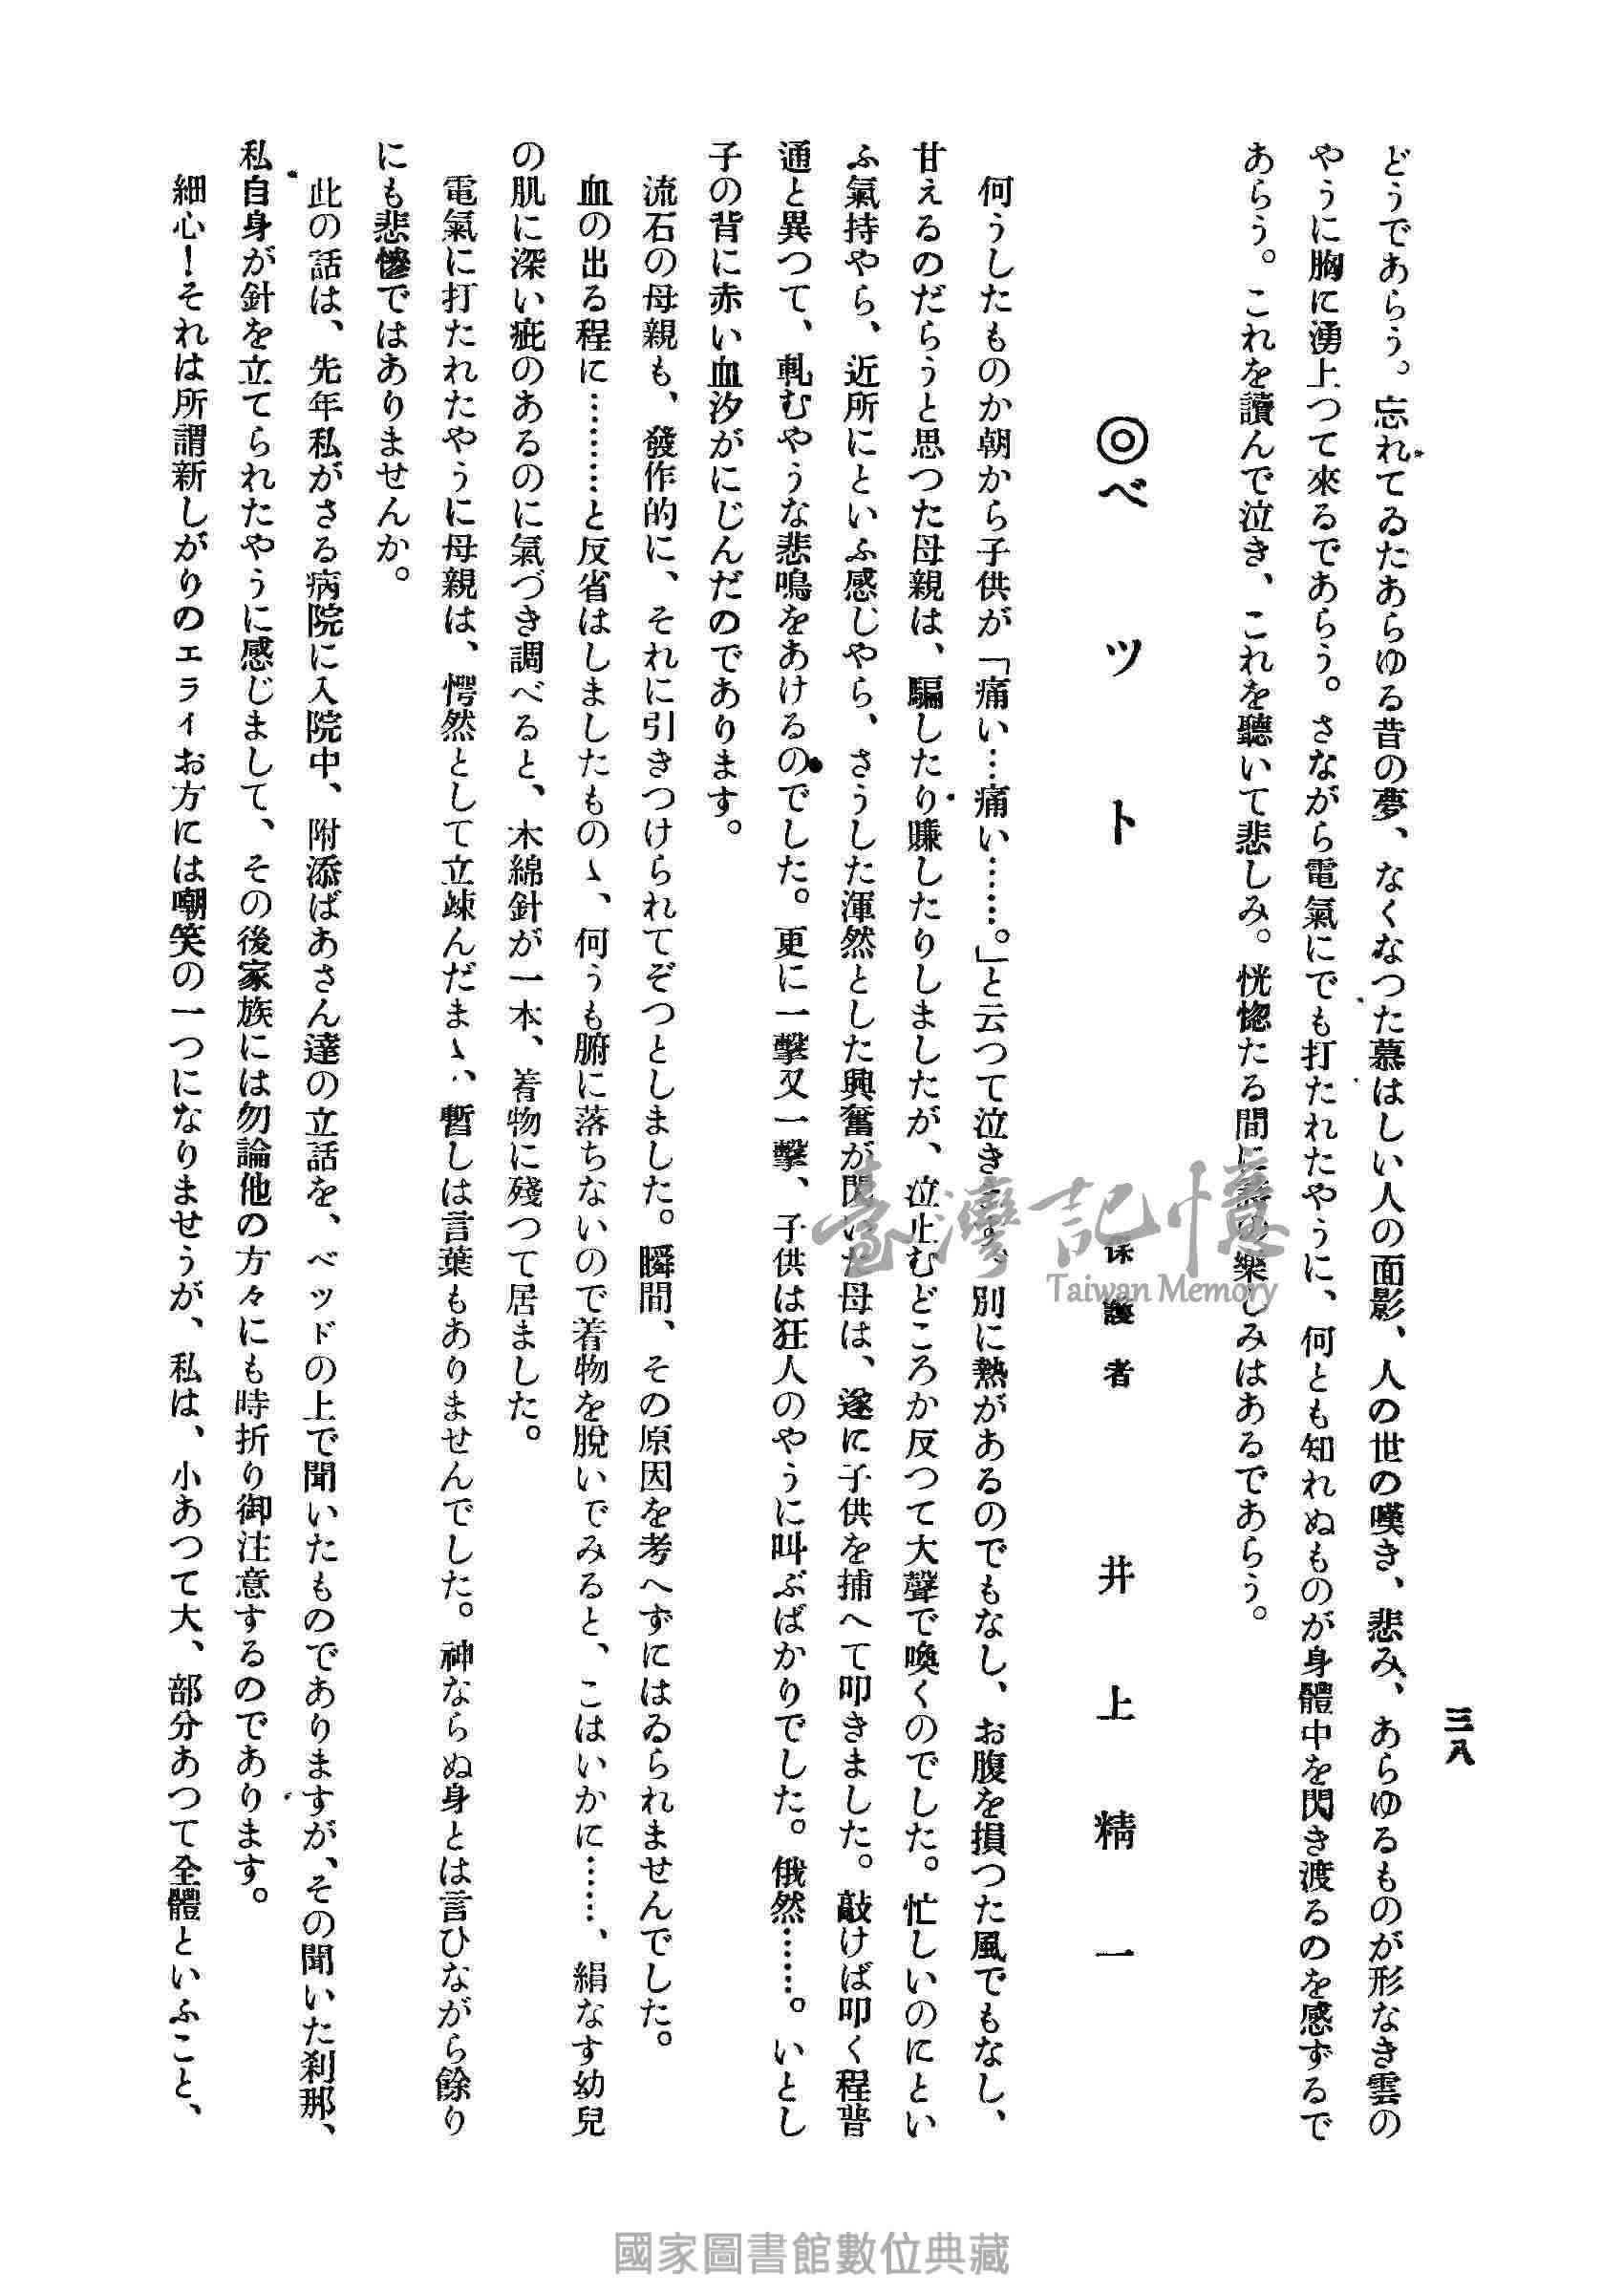 三八
どうであらう。忘れてゐたあらゆる昔の夢、なくなつた慕はしい人の面影、人の世の嘆き、悲み、あらゆるものが形なき雲の
やうに胸に湧上つて來るであらう。さながら電氣にでも打たれたやうに、何とも知れぬものが身體中を閃き渡るのを感ずるで
あらう。これを讀んで泣き、これを聽いて悲しみ。恍惚たる間に の樂しみはあるであらう。
◎ベツト
保護者 井上精一
何うしたものか朝から子供が「痛い…痛い……。」と云つて泣きます、別に熱があるのでもなし、お腹を損つた風でもなし、
甘えるのだらうと思つた母親は、騙したり賺したりしましたが、泣止むどころか反つて大聲で喚くのでした。忙しいのにとい
ふ氣持やら、近所にといふ感じやら、さうした渾然とした興奮が閃いた母は、遂に子供を捕へて叩きました。敲けば叩く程普
通と異つて、軋むやうな悲鳴をあけるのでした。更に一擊又一擊、子供は狂人のやうに叫ぶばかりでした。俄然……。いとし
子の背に赤い血汐がにじんだのであります。
流石の母親も、發作的に、それに引きつけられてぞつとしました。瞬間、その原因を考へずにはゐられませんでした。
血の出る程に………と反省はしましたものゝ、何うも腑に落ちないので着物を脫いでみると、こはいかに……、絹なす幼兒
の肌に深い疵のあるのに氣づき調べると、木綿針が一本、着物に殘つて居ました。
電氣に打たれたやうに母親は、愕然として立竦んだまゝ、暫しは言葉もありませんでした。神ならぬ身とは言ひながら餘り
にも悲慘ではありませんか。
此の話は、先年私がさる病院に入院中、附添ばあさん達の立話を、ベッドの上で聞いたものでありますが、その聞いた刹那、
私自身が針を立てられたやうに感じまして、その後家族には勿論他の方々にも時折り御注意するのであります。
細心！それは所謂新しがりのエライお方には嘲笑の一つになりませうが、私は、小あつて大、部分あつて全體といふこと、
臺灣記憶
Taiwan Memory
國家圖書館數位典藏